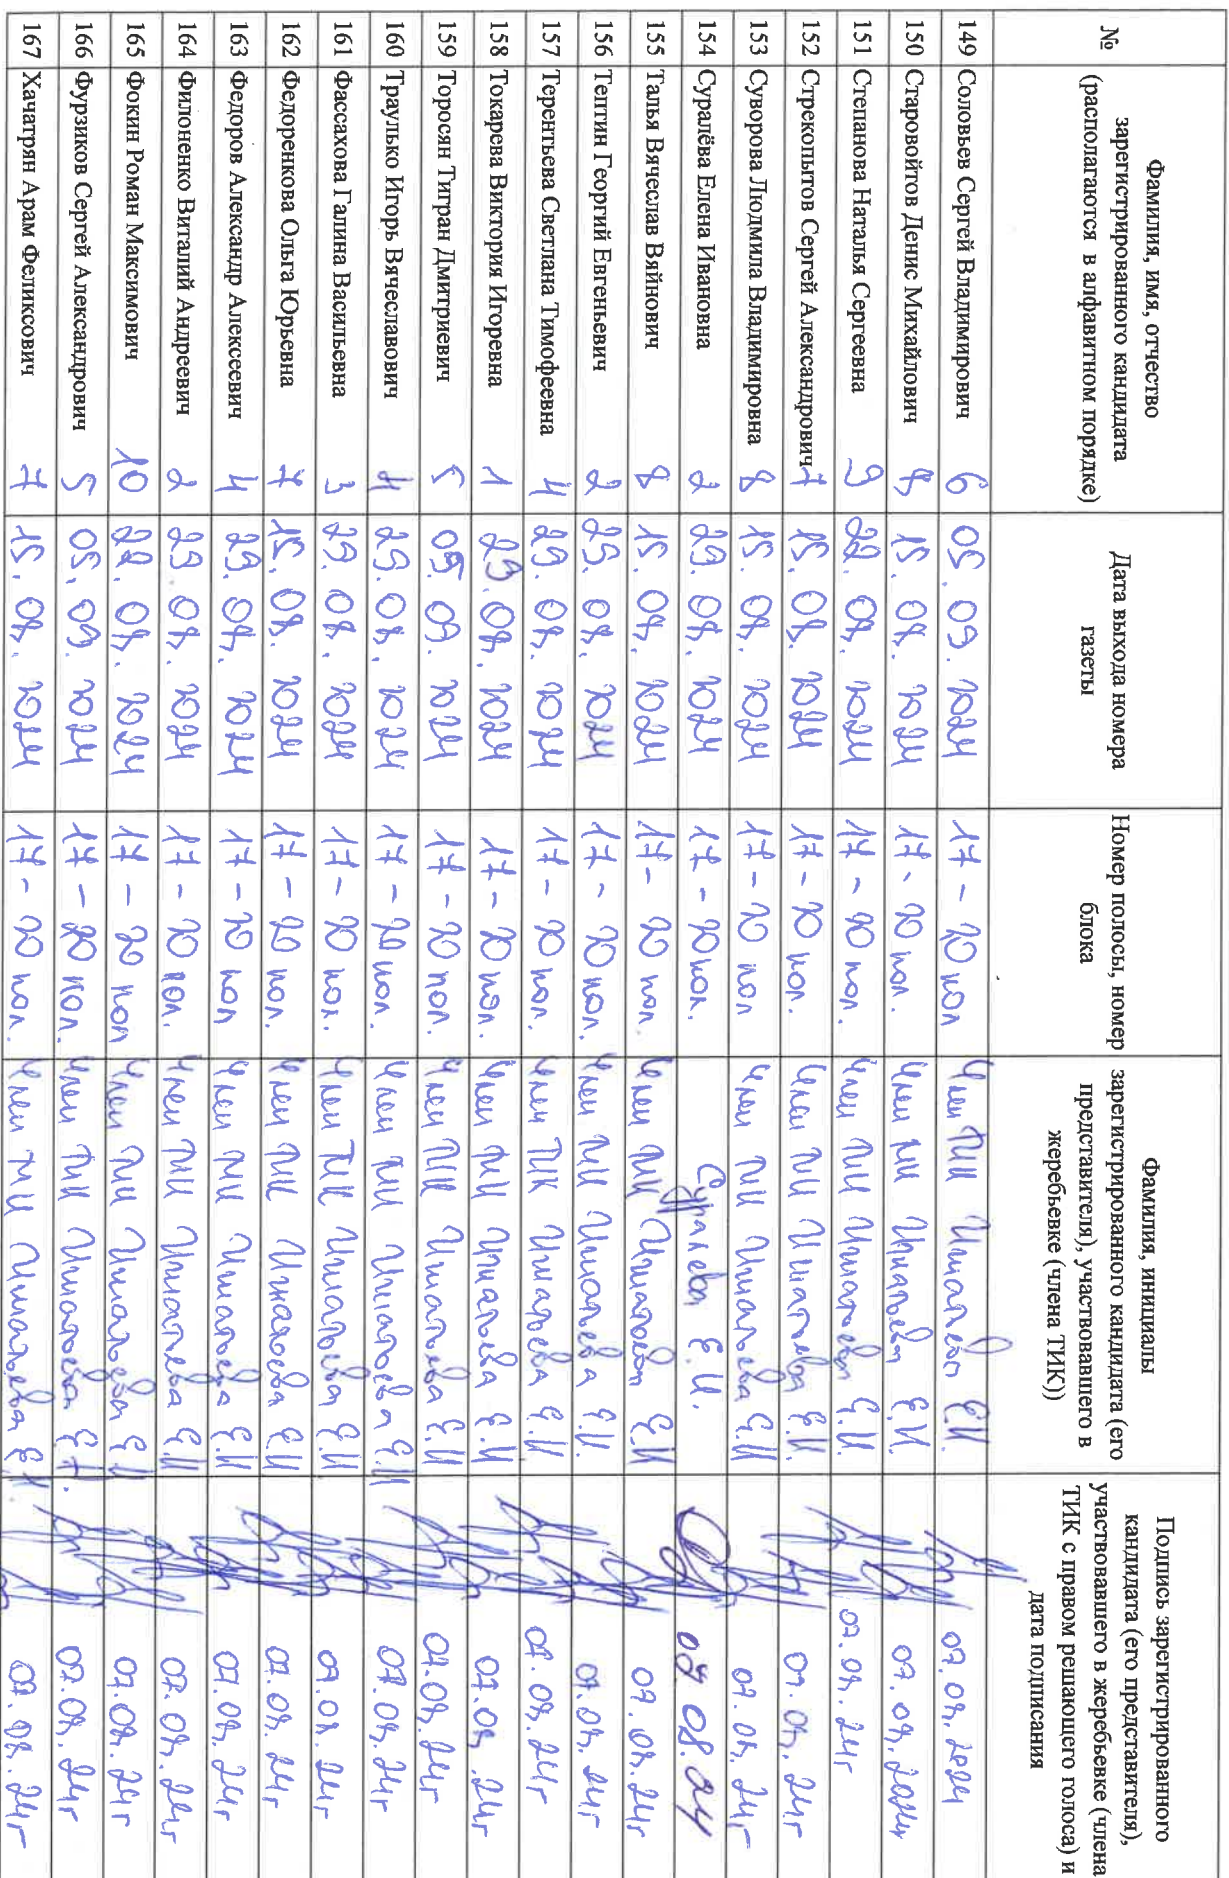 № Фамилия, имя, отчество зарегистрированного кандидата (располагаются в алфавитном порядке) Дата выхода номера газеты Номер полосы, номер блока Фамилия, инициалы зарегистрированного кандидата (его представителя), участвовавшего в жеребьевке (члена ТИК)) Подпись зарегистрированного кандидата (его представителя), участвовавшего в жеребьевке (члена ТИК с правом решающего голоса) и дата подписания
149 Соловьев Сергей Владимирович 6 05.09.2024 17-20 пол Член ТИК Игнатьева Е.И. 07.08.2024
150 Старовойтов Денис Михайлович 8 15.08.2024 17-20 пол. Член ТИК Игнатьева Е.И. 07.08.2024г
151 Степанова Наталья Сергеевна 9 22.08.2024 17-20 пол. Член ТИК Игнатьева Е.И. 07.08.24г
152 Стрекопытов Сергей Александрович 7 15.08.2024 17-20 пол. Член ТИК Игнатьева Е.И. 07.08.24г
153 Суворова Людмила Владимировна 8 15.08.2024 17-20 пол Член ТИК Игнатьева Е.И 07.08.24г
154 Суралёва Елена Ивановна 2 29.08.2024 17-20 пол. Суралева Е.И. 07.08.24
155 Талья Вячеслав Вяйнович 8 15.08.2024 17-20 пол. Член ТИК Игнатьева Е.И 07.08.24г
156 Тептин Георгий Евгеньевич 2 29.08.2024 17-20 пол. Член ТИК Игнатьева Е.И. 07.08.24г
157 Терентьева Светлана Тимофеевна 4 29.08.2024 17-20 пол. Член ТИК Игнатьева Е.И 07.08.24г
158 Токарева Виктория Игоревна 1 29.08.2024 17-20 пол. Член ТИК Игнатьева Е.И 07.08.24г
159 Торосян Тигран Дмитриевич 5 05.09.2024 17-20 пол. Член ТИК Игнатьева Е.И 07.08.24г
160 Траулько Игорь Вячеславович 4 29.08.2024 17-20 пол. Член ТИК Игнатьева Е.И 07.08.24г
161 Фассахова Галина Васильевна 3 29.08.2024 17-20 пол. Член ТИК Игнатьева Е.И 07.08.24г
162 Федоренкова Ольга Юрьевна 7 15.08.2024 17-20 пол. Член ТИК Игнатьева Е.И 07.08.24г
163 Федоров Александр Алексеевич 4 29.08.2024 17-20 пол Член ТИК Игнатьева Е.И 07.08.24г
164 Филоненко Виталий Андреевич 2 29.08.2024 17-20 пол. Член ТИК Игнатьева Е.И 07.08.24г
165 Фокин Роман Максимович 10 22.08.2024 17-20 пол Член ТИК Игнатьева Е.И 07.08.24г
166 Фурзиков Сергей Александрович 5 05.09.2024 17-20 пол. Член ТИК Игнатьева Е.И. 07.08.24г
167 Хачатрян Арам Феликсович 7 15.08.2024 17-20 пол. Член ТИК Игнатьева Е.И. 07.08.24г